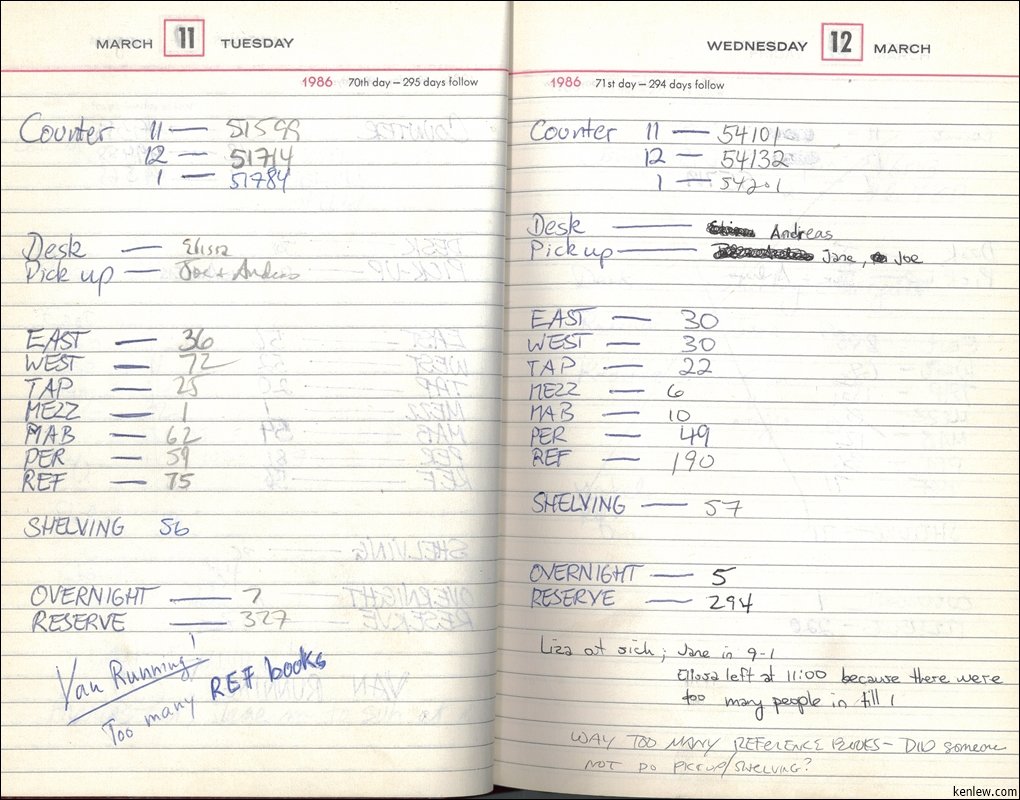 MARCH 11 TUESDAY
1986 70th day — 295 days follow
Counter 11 — 51599
12 — 51714
1 — 51784
Desk — Elissa
Pick up — Joe + Andreas
EAST — 36
WEST — 72
TAP — 25
MEZZ — 1
MAB — 62
PER — 59
REF — 75
SHELVING 56
OVERNIGHT — 7
RESERVE — 327
Van Running!
Too many REF books
WEDNESDAY 12 MARCH
1986 71st day — 294 days follow
Counter 11 — 54101
12 — 54132
1 — 54201
Desk — Andreas
Pick up — Jane, Joe
EAST — 30
WEST — 30
TAP — 22
MEZZ — 6
MAB — 10
PER — 49
REF — 190
SHELVING — 57
OVERNIGHT — 5
RESERVE — 294
Liza at sick; Jane in 9-1
Elissa left at 11:00 because there were
too many people in till 1
WAY TOO MANY REFERENCE BOOKS — DID someone
NOT DO PICKUP/SHELVING?
kenlew.com